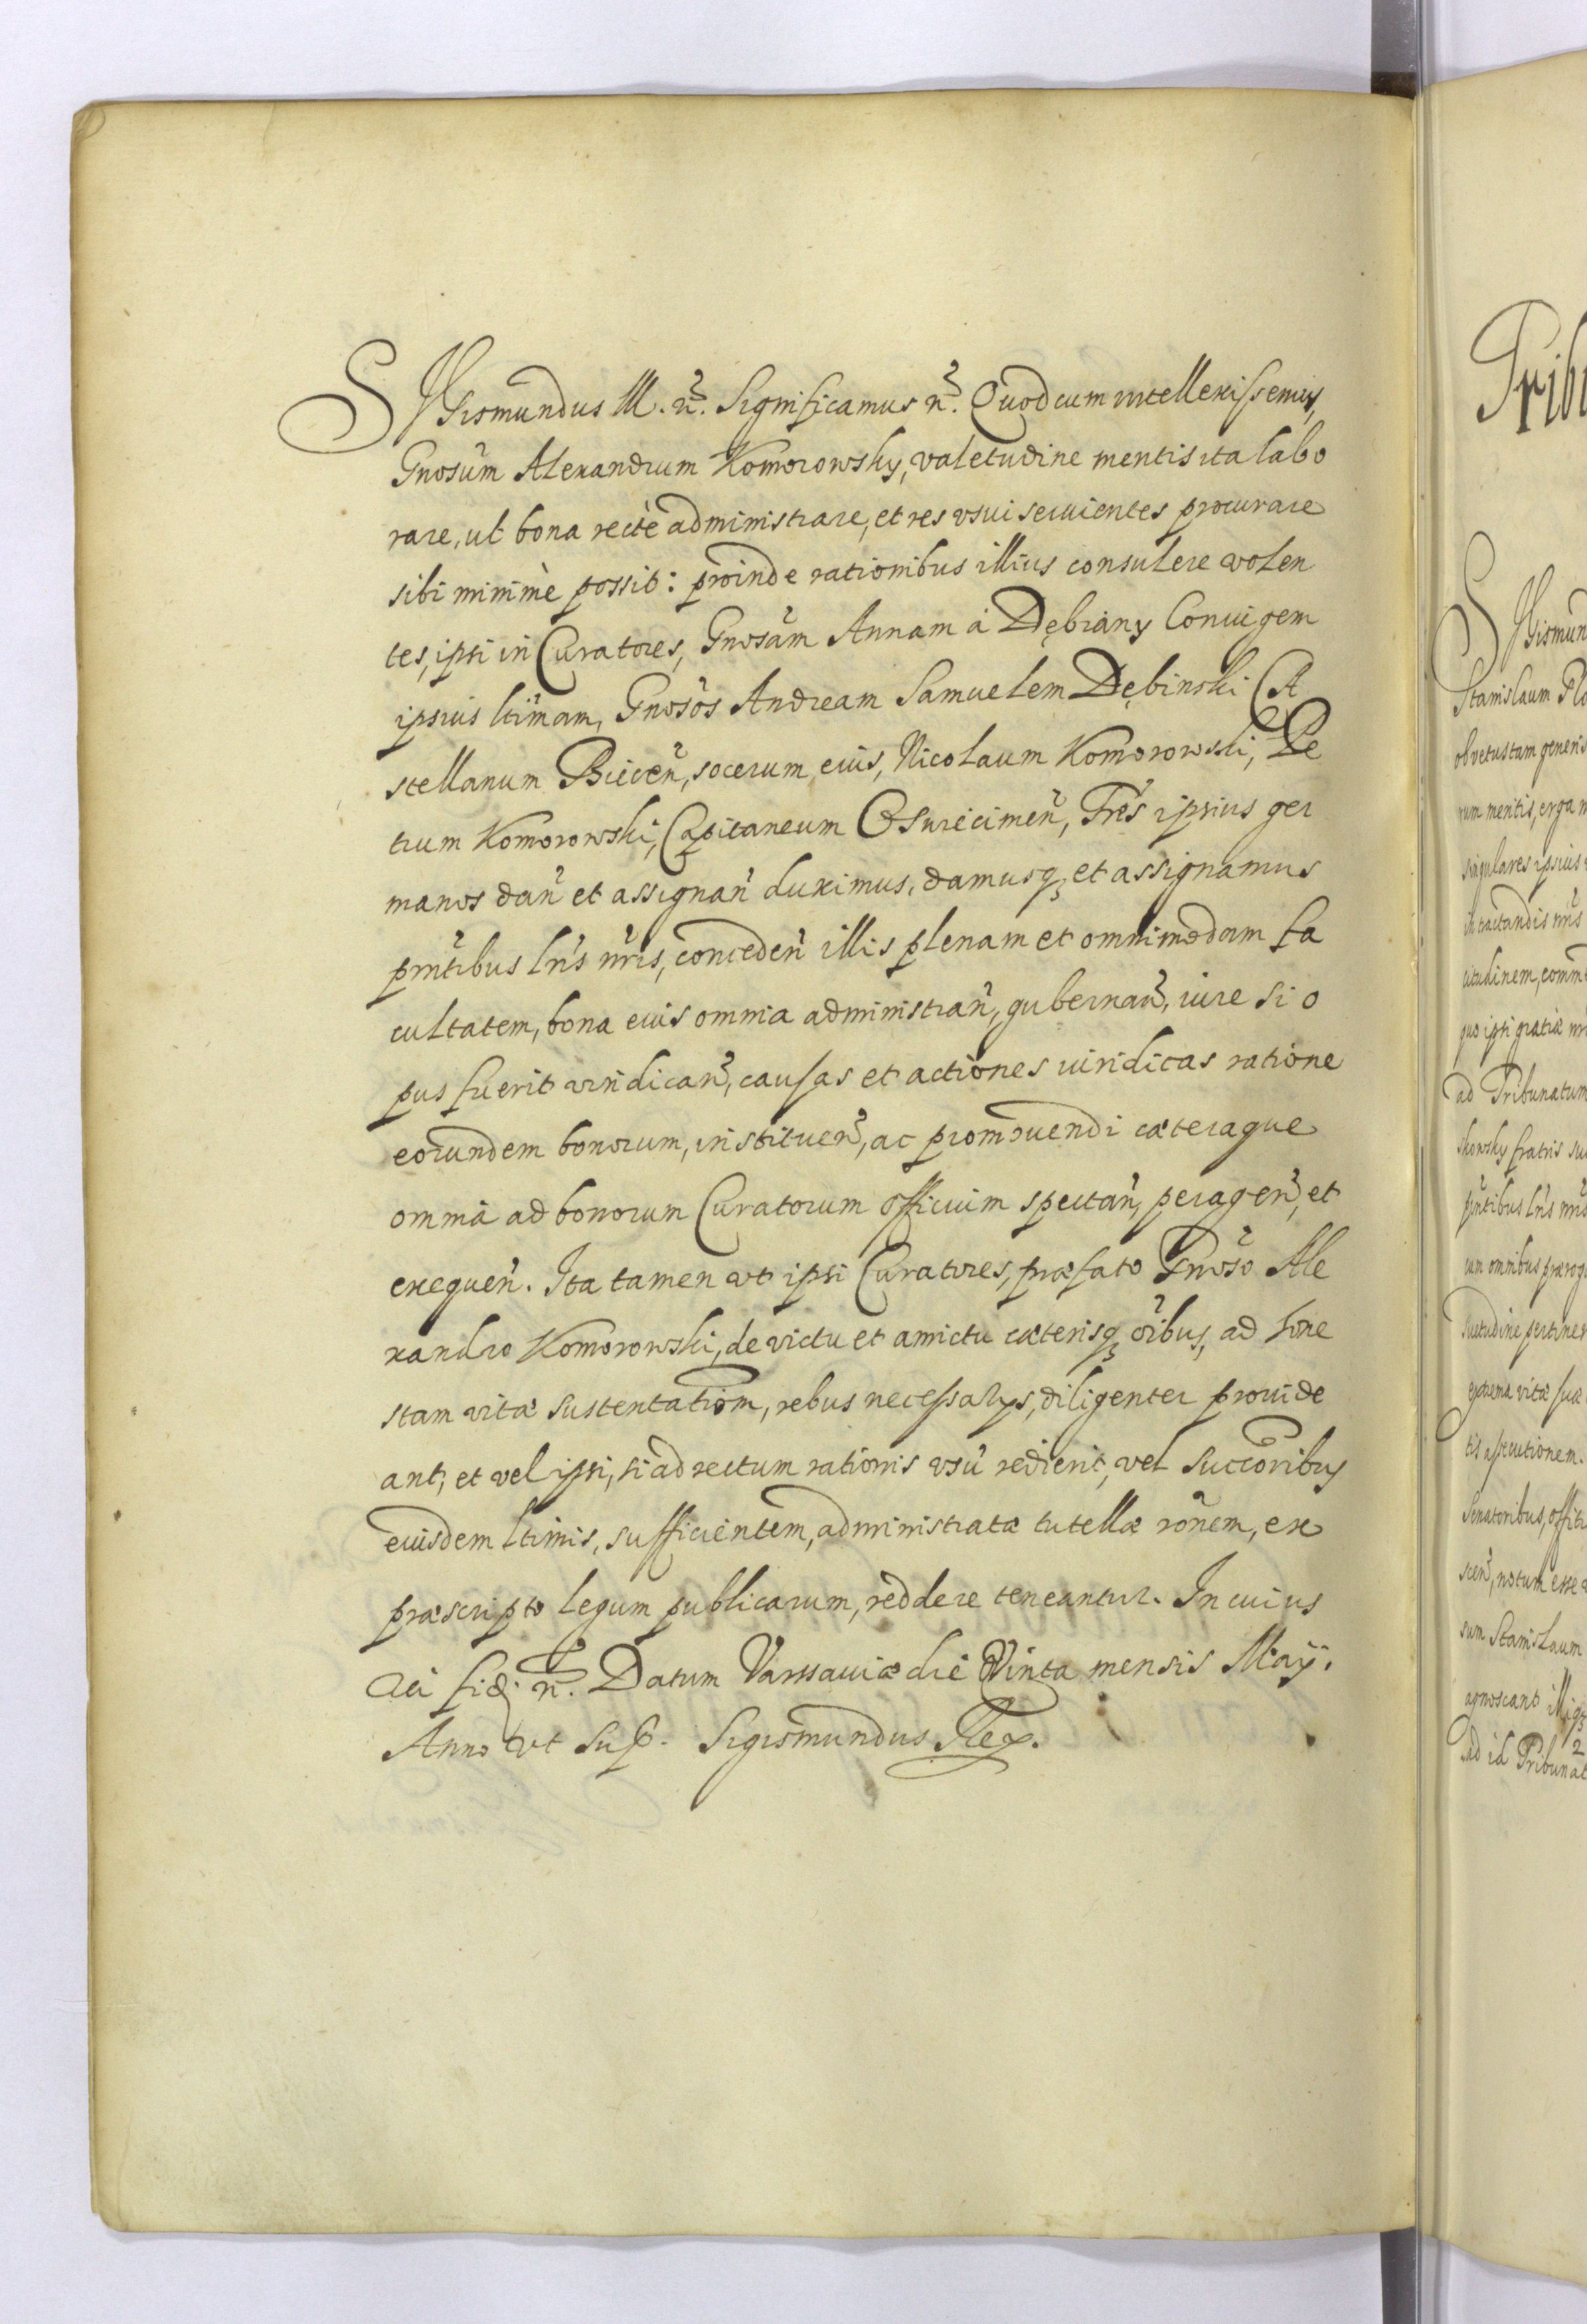 SIgismundus III. ñ. Significamus ñ. Quod cum intellexissemus,
Gnosum Alexandrum Komorowsky, valetudine mentis ita labo
rare, ut bona rectè administrare, et res vsui seruientes procurare
sibi minimè possit: proinde rationibus illius consulere volen
tes, ipsi in Curatores, Gnosam Annam à Dębiany Coniugem
ipsius ltimam, Gnosos Andream Samuelem Dębinski Ca
stellanum Biecen̄, socerum eius, Nicolaum Komorowski, Pe
trum Komorowski, Capitaneum Osuiecimen̄, Fres ipsius ger
manos dan̄ et assignan̄ duximus, damusq; et assignamus
pntibus lris nris, conceden̄ illis plenam et omnimodam fa
cultatem, bona eius omnia administran̄, gubernan̄, iure si o
pus fuerit vindican̄, causas et actiones iuridicas ratione
eorundem bonorum, instituen̄, ac promouendi cæteraque
omnia ad bonorum Curatorum officium spectan̄, peragen̄, et
exequen̄. Ita tamen vt ipsi Curatores, præfato Gnoso Ale
xandro Komorowski, de victu et amictu cæterisq; oibus, ad hone
stam vitæ sustentationem, rebus necessarijs, diligenter prouide
ant, et vel ipsi, si ad rectum rationis vsū redierit, vel succoribus
eiusdem ltimis, sufficientem, administratæ tutellæ ronem, ex
præscripto legum publicarum, reddere teneantur. In cuius
rei fid. ñ. Datum Varssauiæ die Qvinta mensis Maij.
Anno vt sup. Sigismundus Rex.
Trib
SIgismun
Stanislaum
ob vetustam generis
rum meritis, erga
singulares ipsius
in tractandis
citudinem,
quo ipsi gratiæ
ad Tribunatum
skowsky fratris
pntibus lris nris
cum omnibus prærog
suetudine pertinen
extrema vitæ suæ
tis assecutionem.
Senatoribus,
scen̄, notum esse
sum Stanislaum
agnoscant illiq;
ad id Tribunat